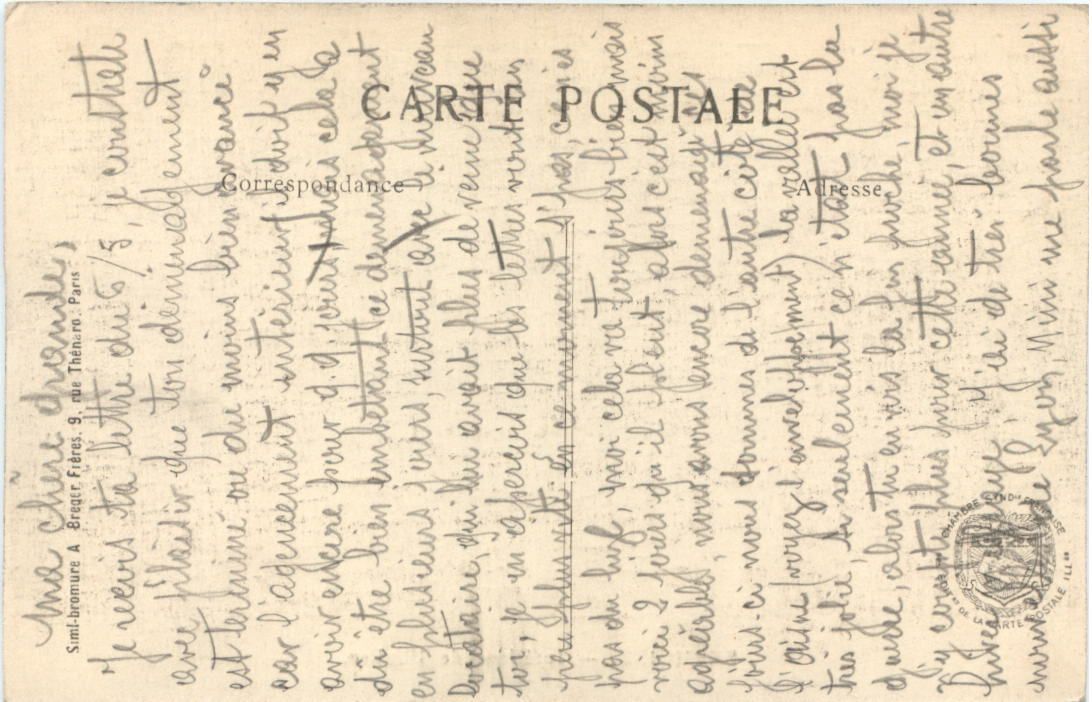 CARTE POSTALE
Correspondance
Adresse
Simi-bromure A Breger Frères, 9, rue Thénard, Paris
CHAMBRE SYND^le FRANÇAISE
DE LA CARTE POSTALE ILL^ée
Ma chère grande,
Je reçois ta lettre du 6/5, je constate
avec plaisir que ton déménagement
est terminé ou du moins bien avancé
car l'agencement intérieur, doit y en
avoir encore pour q.q. jours, mais cela a
dû être bien embêtant ce déménagement
en plusieurs jours, surtout avec le nouveau
locataire, qui lui avait plus de veine que
toi, je m'aperçois que les lettres vont un
peu plus vite en ce moment si pas, ce n'est
pas du luxe, moi cela va toujours bien mais
voici 2 jours qu'il pleut, alors c'est moins
agréable, nous avons encore déménagé ces
jours-ci nous sommes de l'autre côté de
l'Aisne (voyez l'enveloppement) la vallée est
très jolie, si seulement ce n'était pas la
guerre, alors tu en vois la fin proche, moi je
n'y compte plus pour cette année, et un autre
hiver
J'ai de très bonnes
nouvelles de Mimi me parle aussi